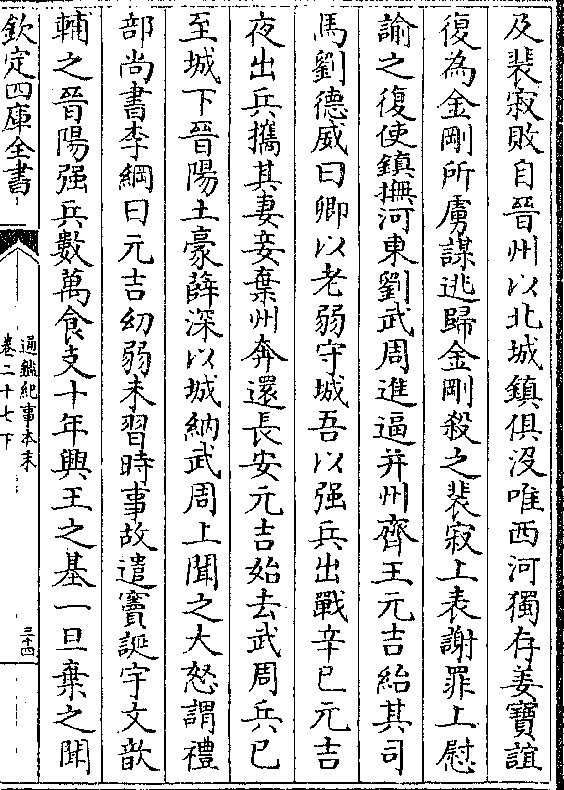 及裴寂敗自晉州以北城鎮俱没唯西河獨存姜寶誼
復為金剛所虜謀逃歸金剛殺之裴寂上表謝罪上慰
諭之復使鎮撫河東劉武周進逼并州齊王元吉紿其司
馬劉德威曰卿以老弱守城吾以强兵出戰辛巳元吉
夜出兵攜其妻妾棄州奔還長安元吉始去武周兵已
至城下晉陽土豪薛深以城納武周上聞之大怒謂禮
部尚書李綱曰元吉幼弱未習時事故遣竇誕宇文歆
輔之晉陽强兵數萬食支十年興王之基一旦棄之聞
欽定四庫全書
通鑑紀事本末
卷二十七下
三十四